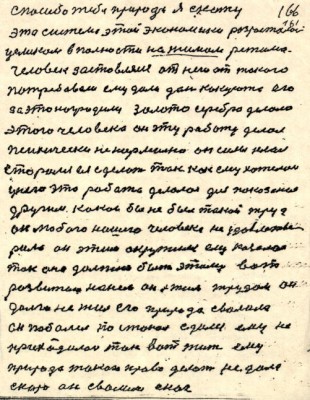 спасибо тебе природа я скажу 166
эта система этой экономики
целиком в полности на жимом режима.
человек заставляет от него от такого
потребовали ему дали дан какую то его
за это наградили золото серебро делала
этого человека он эту работу делал
психически не нормально он силы клал
старался ее сделать так как ему хотелось
у него эта работа делалась для показания
другим. Какой бы не был такой труд
он любого нашего человека не
он этим окружили ему казалось
так оно должно быть этому вот
развитом на нем он жил трудом он
долго не жил его природа свалила
он побоялся по стойки сделали ему не
приходилось так вот жить ему
природа такого право делать не дала
скоро он свалили с ног